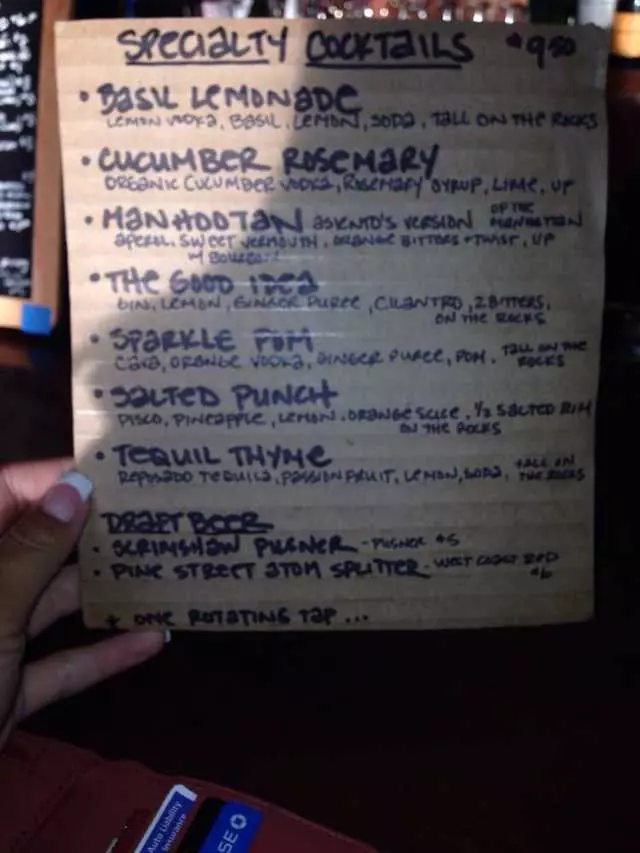 SPECIALTY COCKTAILS $9.50
• BASIL LEMONADE
LEMON VODKA, BASIL, LEMON, SODA, TALL ON THE ROCKS
• CUCUMBER ROSEMARY
ORGANIC CUCUMBER VODKA, ROSEMARY SYRUP, LIME, UP
• MANHOOTAN ASIENTO'S VERSION OF THE MANHATTAN
APEROL, SWEET VERMOUTH, ORANGE BITTERS + TWIST, UP
W BOURBON
• THE GOOD IDEA
GIN, LEMON, GINGER PUREE, CILANTRO, 2 BITTERS,
ON THE ROCKS
• SPARKLE POM
CAVA, ORANGE VODKA, GINGER PUREE, POM, TALL ON THE ROCKS
• SALTED PUNCH
PISCO, PINEAPPLE, LEMON, ORANGE SLICE, 1/2 SALTED RIM
ON THE ROCKS
• TEQUIL THYME
REPOSADO TEQUILA, PASSIONFRUIT, LEMON, SODA, TALL ON THE ROCKS
DRAFT BEER
• SCRIMSHAW PILSNER - PILSNER $5
• PINE STREET ATOM SPLITTER - WEST COAST RED
$6
+ ONE ROTATING TAP ...
Auto Liability
Insurance
SE